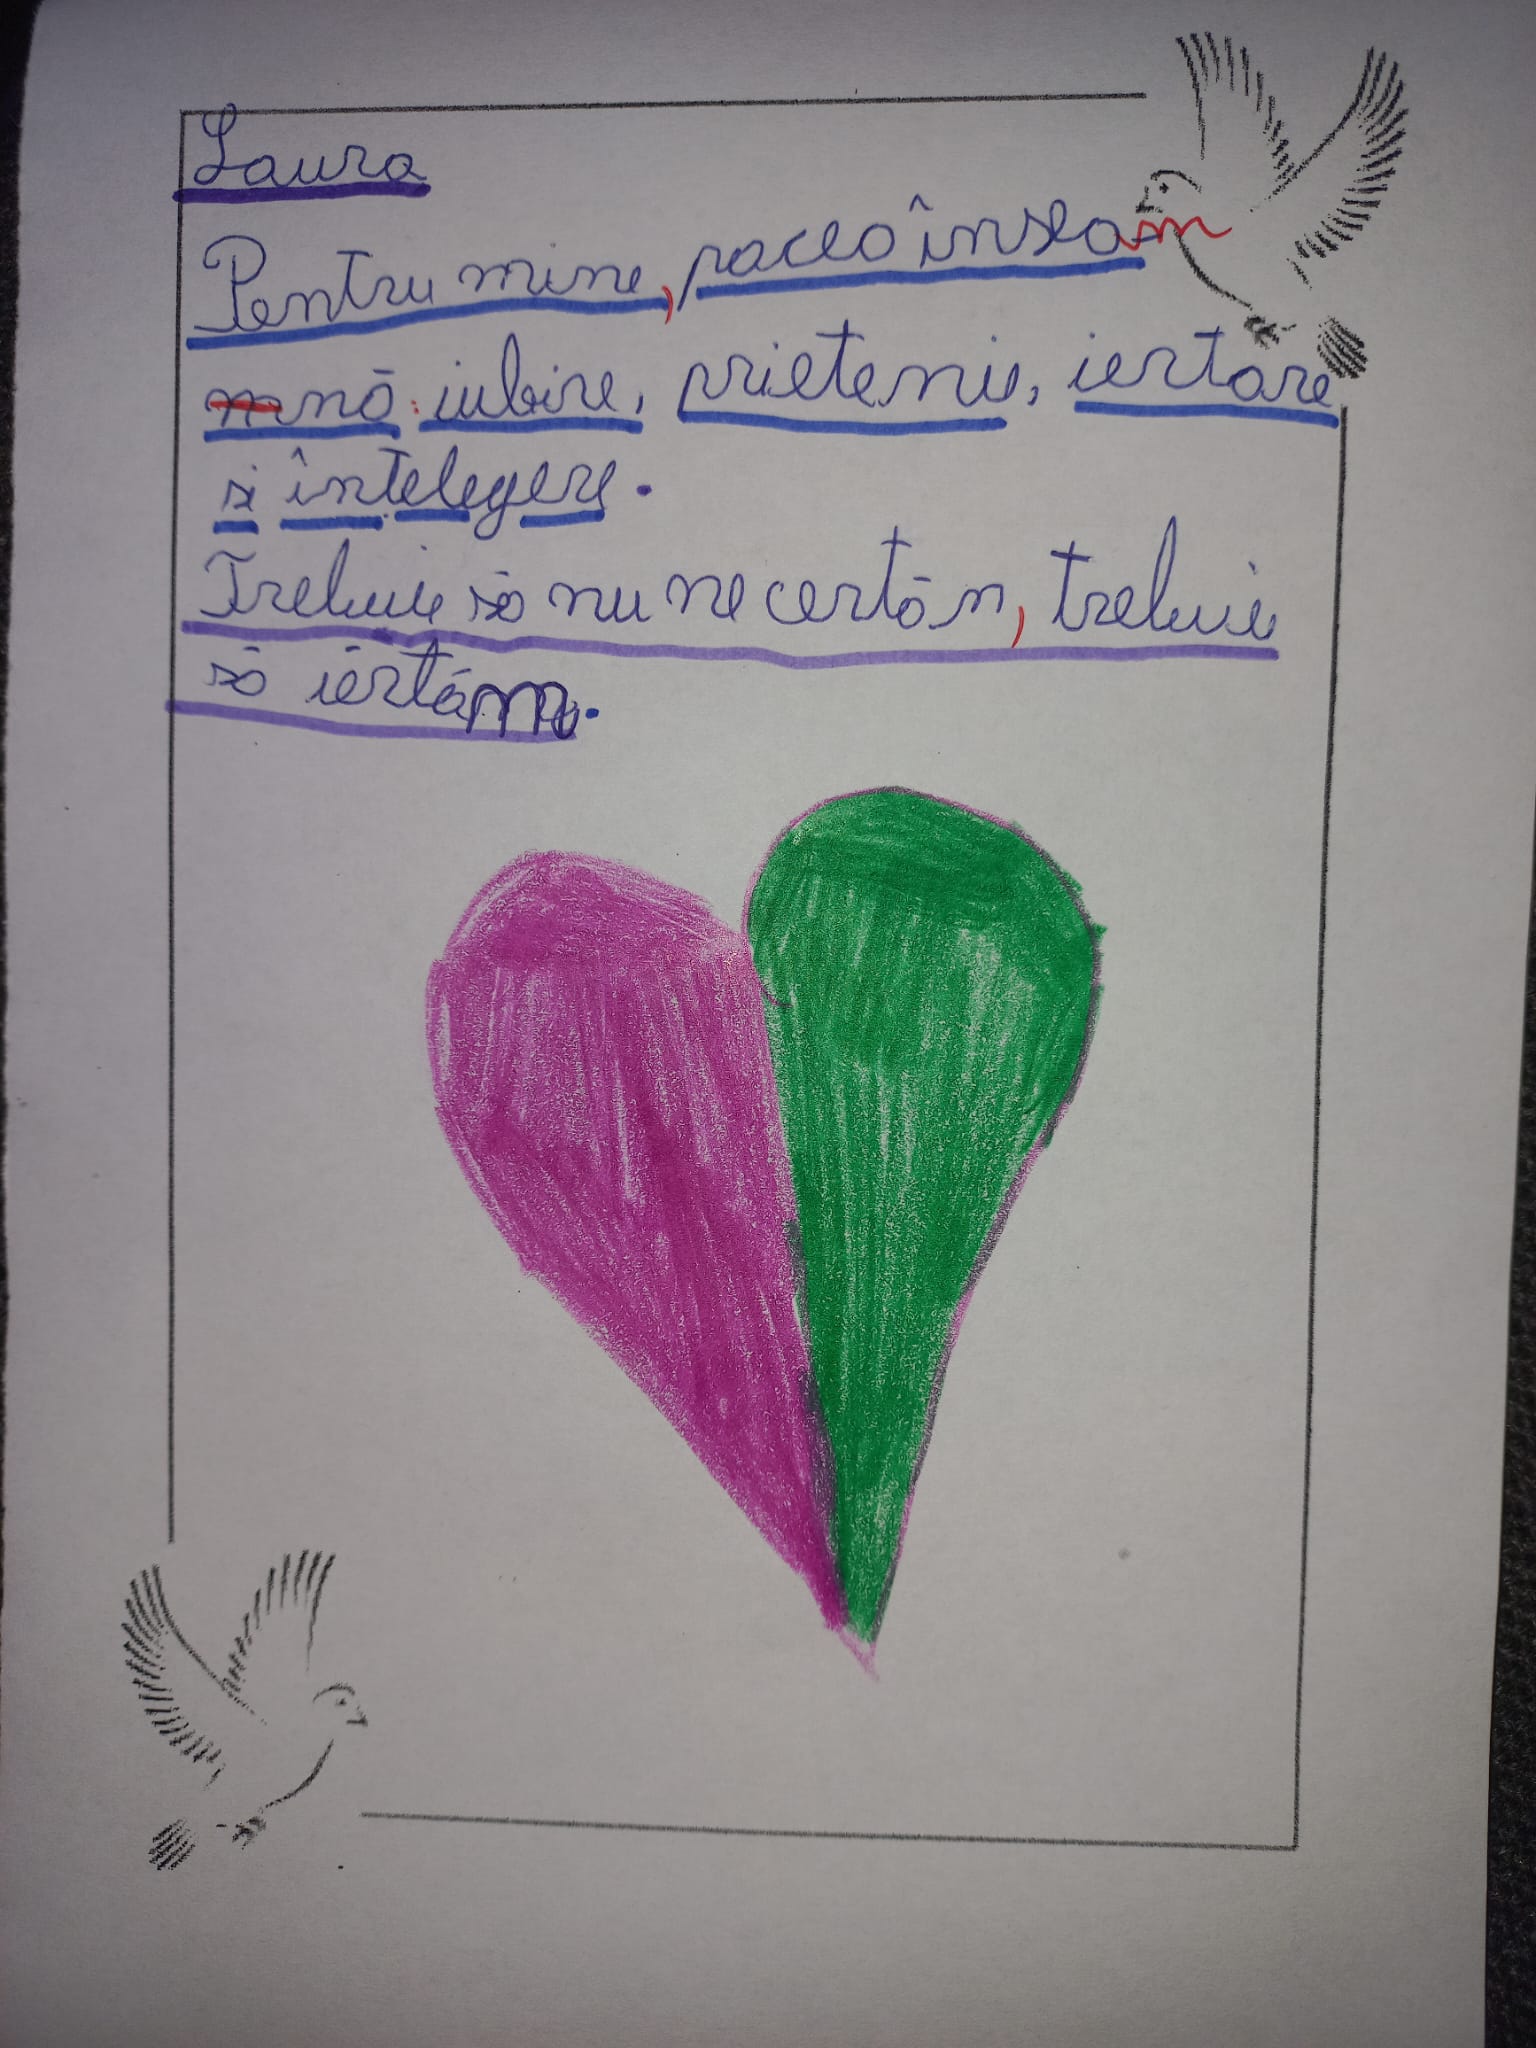 Laura
Pentru mine, pacea înseam
nă: iubire, prietenie, iertare
si întelegere.
Trebuie să nu ne certăm, trebuie
să iertăm.